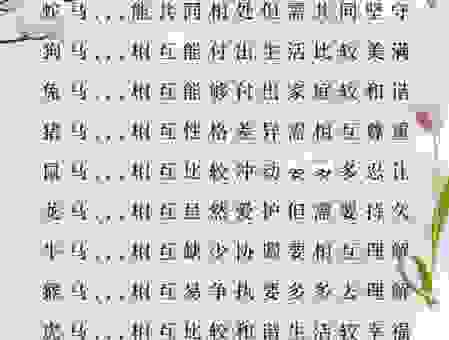 蛇马...能共同相处但需共同坚守
狗马...相互能付出生活比较美满
兔马...相互能够付出家庭较和谐
猪马...相互性格差异需相互尊重
鼠马...相互比较冲动要多多忍让
龙马...相互虽然爱护但需要持久
牛马...相互缺少协调要相互理解
猴马...相互易争执要多多去理解
虎马...相互比较和谐生活较幸福